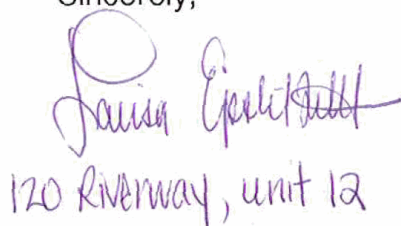 Sincerely,
Louisa
120 Riverway, unit 12